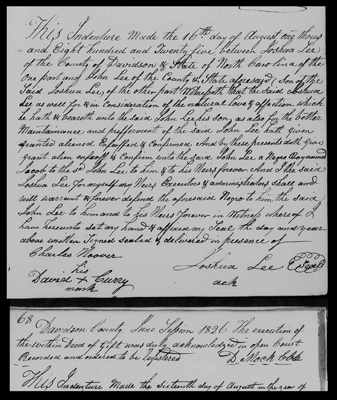 This Indenture Made the 16th day of August, one thous
and Eight hundred and Twenty five, between Joshua Lee
of the County of Davidson & State of North Carolina of the
One part and John Lee of the County & State aforesaid, Son of the
said Joshua Lee, of the other part Witnesseth that the said Joshua
Lee as well for & in Consideration of the natural love & affection which
he hath & beareth unto the said John Lee his son, as also for the better
Maintainance and prefferment of the said John Lee hath given
granted aliened Enfeoffed & Confirmed And by these presents doth give
grant alien enfeoff & Confirm unto the said John Lee a Negro Boy named
Jacob to the sd John Lee to him & to his Heirs forever And I the said
Joshua Lee for myself my Heirs Executors & administrators shall and
will warrant & forever defend the aforesaid Negro to him the said
John Lee to him and to his Heirs forever in Witness whereof I
have hereunto set my hand & affixed my Seal the day and year
above written Signed sealed & delivered in presence of
Charles Hoover
his
David + Curry
mark
Joshua Lee Seal
ack
68
Davidson County June Session 1826 The execution of
the within Deed of Gift was duly acknowledged in open Court
Recorded and ordered to be registered D. Mock Clk
This Indenture Made the Sixteenth day of August in the year of